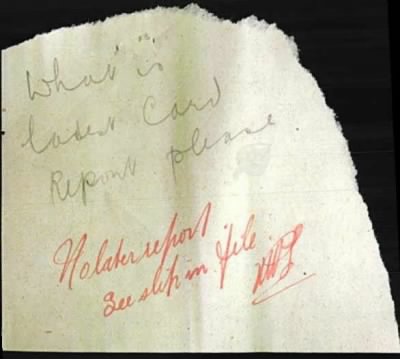 What is
latest Card
Report please
No later report
See slip in file